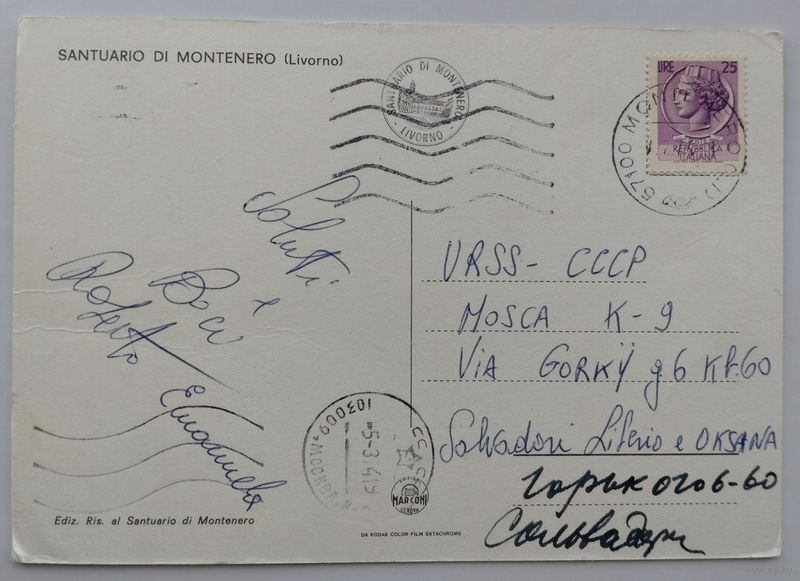 SANTUARIO DI MONTENERO (Livorno)
SANTUARIO DI MONTENERO
- LIVORNO -
LIRE 25
REPUBBLICA
ITALIANA
57100 MONTENERO (LI)
Saluti
e
Baci
Roberto Emanuela
URSS - CCCP
MOSCA K-9
VIA GORKŸ g6 KV.60
Salvadori Liberio e OKSANA
Горького 6-60
Сольвадори
103009 * МОСКВА
-5-3
СССР
EDIZIONI
MARCONI
GENOVA
Ediz. Ris. al Santuario di Montenero
DA KODAK COLOR FILM EKTACHROME
www.ay.by